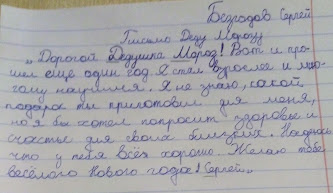 Безгодов Сергей
Письмо Деду Морозу
„Дорогой Дедушка Мороз! Вот и про-
шел ещё один год. Я стал взрослее и мно-
гому научился. Я не знаю, какой
подарок ты приготовил для меня,
но я бы хотел попросить здоровье и
счастье для своих близких. Надеюсь
что у тебя всё хорошо. Желаю тебе
весёлого Нового года! Сергей„